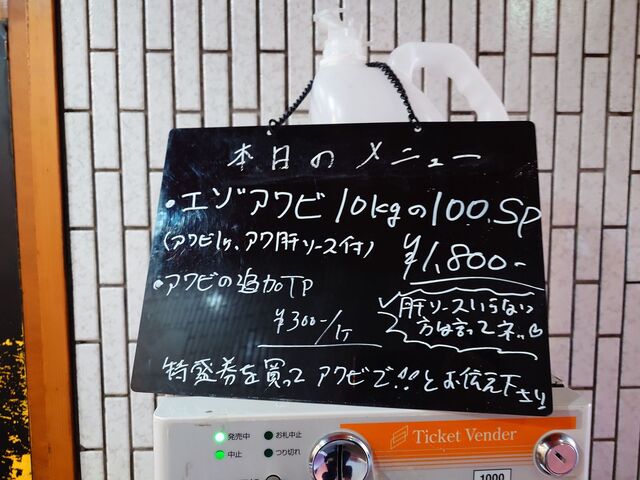 本日のメニュー
・エゾアワビ10kgの100.SP
(アワビ1ヶ、アワ肝ソース付)
¥1,800-
・アワビの追加TP
¥300-/1ヶ
肝ソースいらない
方は言ってネッ
特盛券を買って アワビで!!とお伝え下さい
発売中
お札中止
中止
つり切れ
Ticket Vender
1000